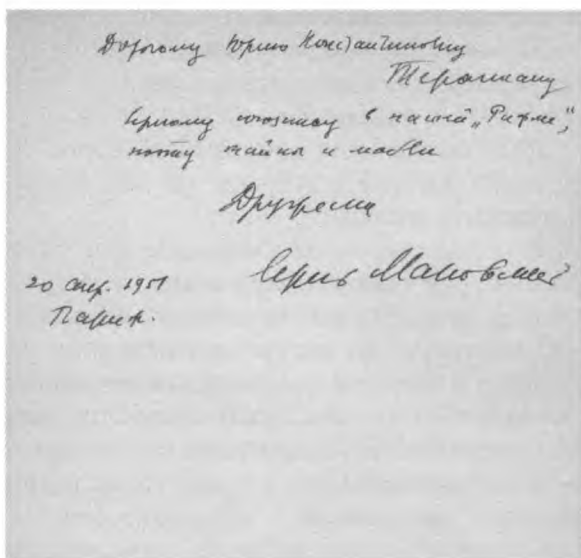 Дорогому Юрию Константиновичу
Терапиану
верному союзнику в нашей „Рифме“,
поэту тайны и любви
Дружески
Сергей Маковский
20 апр. 1951
Париж.